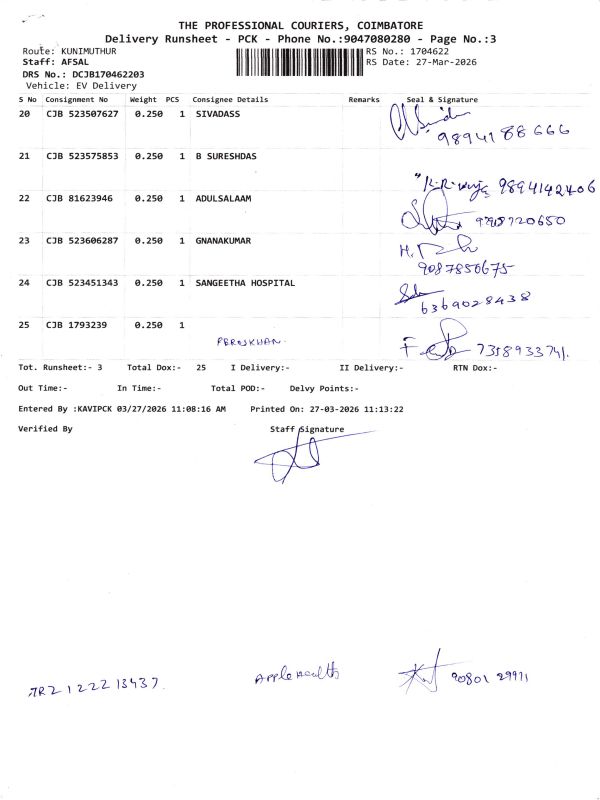 THE PROFESSIONAL COURIERS, COIMBATORE
Delivery Runsheet - PCK - Phone No.:9047080280 - Page No.:3
Route: KUNIMUTHUR RS No.: 1704622
Staff: AFSAL RS Date: 27-Mar-2026
DRS No.: DCJB170462203
Vehicle: EV Delivery
S No Consignment No Weight PCS Consignee Details Remarks Seal & Signature
20 CJB 523507627 0.250 1 SIVADASS
9894188666
21 CJB 523575853 0.250 1 B SURESHDAS
9894142406
22 CJB 81623946 0.250 1 ADULSALAAM
23 CJB 523606287 0.250 1 GNANAKUMAR
9087850675
24 CJB 523451343 0.250 1 SANGEETHA HOSPITAL
6369028438
25 CJB 1793239 0.250 1
FEROSKHAN. 7358933741.
Tot. Runsheet:- 3 Total Dox:- 25 I Delivery:- II Delivery:- RTN Dox:-
Out Time:- In Time:- Total POD:- Delvy Points:-
Entered By :KAVIPCK 03/27/2026 11:08:16 AM Printed On: 27-03-2026 11:13:22
Verified By Staff Signature
Apple Health 90801 29971